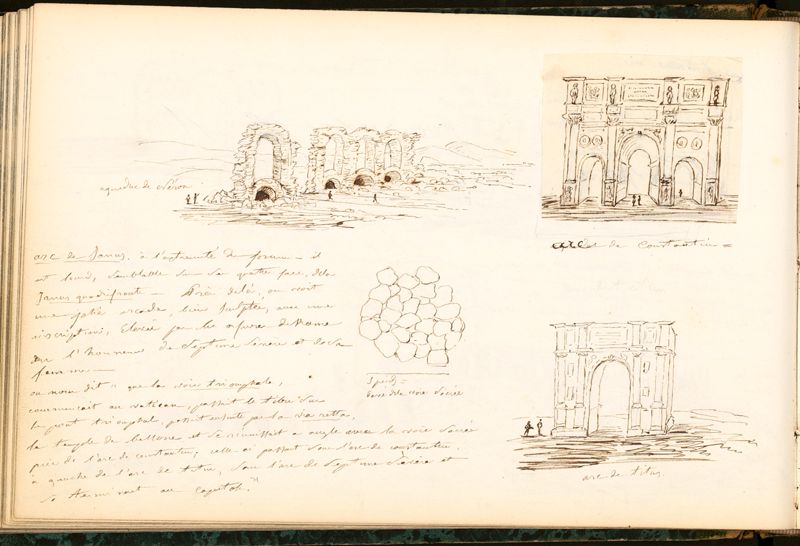 aqueduc de Néron
arc de Constantin =
arc de Janus, à l'extrémité du forum - il
est lourd, semblable sur ses quatre faces, dela
Janus quadrifront - Près delà, on voit
une jolie arcade, bien sculptée, avec une
inscription, élevée par les de Rome
en l'honneur de Septime Sévère et de sa
femme -
on nous dit " que la voie triomphale,
commençait au vatican, passait le tibre sur
le pont triomphal, passait ensuite par la via retta,
le temple de bellone et se réunissait a angle avec la voie Sacrée
près de l'arc de constantin; celle ci passait sous l'arc de constantin
à gauche de l'arc de titus, sous l'arc de Septime Sévère et
se terminait au capitole. "
3 pieds =
de la voie Sacrée
arc de titus